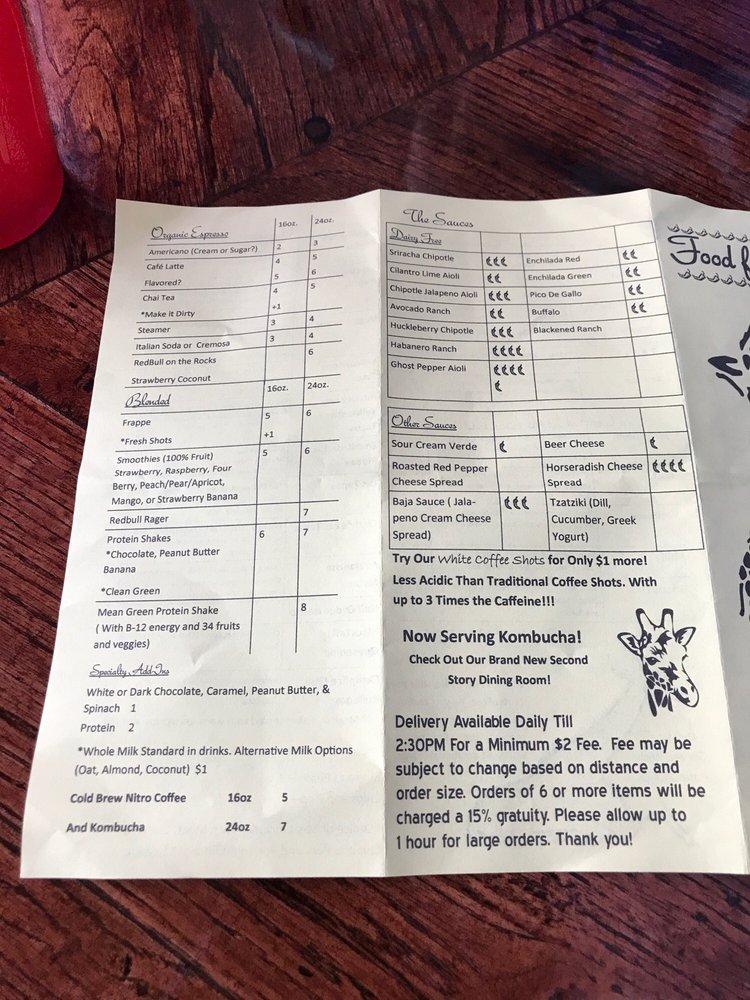 Organic Espresso 16oz. 24oz.
Americano (Cream or Sugar?) 2 3
Café Latte 4 5
Flavored? 5 6
Chai Tea 4 5
*Make It Dirty +1
Steamer 3 4
Italian Soda or Cremosa 3 4
RedBull on the Rocks 6
Strawberry Coconut
Blended 16oz. 24oz.
Frappe 5 6
*Fresh Shots +1
Smoothies (100% Fruit) 5 6
Strawberry, Raspberry, Four
Berry, Peach/Pear/Apricot,
Mango, or Strawberry Banana
Redbull Rager 7
Protein Shakes 6 7
*Chocolate, Peanut Butter
Banana
*Clean Green
Mean Green Protein Shake 8
( With B-12 energy and 34 fruits
and veggies)
Specialty Add-Ins
White or Dark Chocolate, Caramel, Peanut Butter, &
Spinach 1
Protein 2
*Whole Milk Standard in drinks. Alternative Milk Options
(Oat, Almond, Coconut) $1
Cold Brew Nitro Coffee 16oz 5
And Kombucha 24oz 7
The Sauces
Dairy Free
Sriracha Chipotle Enchilada Red
Cilantro Lime Aioli Enchilada Green
Chipotle Jalapeno Aioli Pico De Gallo
Avocado Ranch Buffalo
Huckleberry Chipotle Blackened Ranch
Habanero Ranch
Ghost Pepper Aioli
Other Sauces
Sour Cream Verde Beer Cheese
Roasted Red Pepper Horseradish Cheese
Cheese Spread Spread
Baja Sauce ( Jala- Tzatziki (Dill,
peno Cream Cheese Cucumber, Greek
Spread) Yogurt)
Try Our White Coffee Shots for Only $1 more!
Less Acidic Than Traditional Coffee Shots. With
up to 3 Times the Caffeine!!!
Now Serving Kombucha!
Check Out Our Brand New Second
Story Dining Room!
Delivery Available Daily Till
2:30PM For a Minimum $2 Fee. Fee may be
subject to change based on distance and
order size. Orders of 6 or more items will be
charged a 15% gratuity. Please allow up to
1 hour for large orders. Thank you!
Food